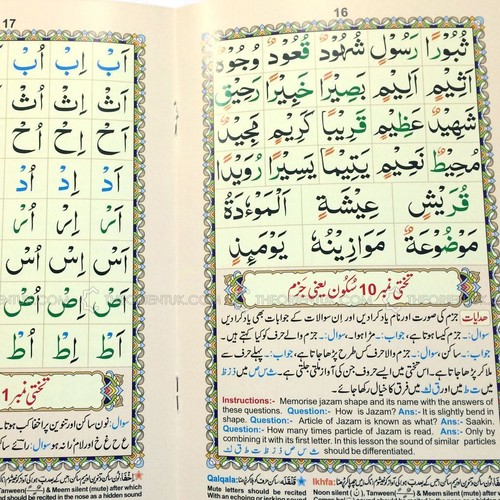 16
ثُبُوْرًا رَسُوْلٍ شُهُوْدٌ قُعُوْدٌ وُجُوْهٌ
اَثِيْمٍ اَلِيْمٍ بَصِيْرًا خَبِيْرًا رَحِيْقٍ
شَهِيْدٌ عَظِيْمٍ قَرِيْبًا كَرِيْمٍ مَجِيْدٌ
مُحِيْطٌ نَعِيْمٍ يَتِيْمًا يَسِيْرًا رُوَيْدًا
قُرَيْشٍ عِيْشَةٍ اَلْمَوْءٗدَةُ
مَوْضُوْعَةٌ مَوَازِيْنُهٗ يَوْمَئِذٍ
تختی نمبر 10 سُکُون یعنی جزم
ھدایات جزم کی صورت اور نام یاد کرادیں اور اِن سوالات کے جوابات بھی یاد کرا دیں
سوال:۔ جزم کیسا ہوتا ہے، جواب:۔ مڑا ہوا۔ سوال:۔ جزم والے حرف کو کیا کہتے ہیں۔
جواب:۔ ساکن، سوال:۔ جزم والا حرف کس طرح پڑھا جاتا ہے، جواب:۔ پہلے حرف سے
ملا کر پڑھا جاتا ہے۔ اس تختی میں ایسے حروف جن کی آواز ملتی جلتی ہے۔ ث س ص میں ذ ز ظ
میں ء ع ت ط میں اور ق ک میں فرق کا خیال رکھا جائے۔
Instructions:- Memorise jazam shape and its name with the answers of
these questions. Question:- How is Jazam? Ans:- It is slightly bend in
shape. Question:- Article of Jazam is known as what? Ans:- Saakin.
Question:- How many times particle of Jazam is read. Ans:- Only by
combining it with its first letter. In this lesson the sound of similar particles
should be differentiated.
Qalqala: قَلْقَلَه
Ikhfa:
Mute letters should be recited
With an echoing or
Noon Saakin
17
اَبْ اِبْ اُبْ
اَثْ اِثْ اُثْ
اَحْ اِحْ اُحْ
اَدْ اِدْ اُدْ
اَرْ اِرْ اُرْ
اَسْ اِسْ اُسْ
اَصْ اِصْ اُصْ
اَطْ اِطْ اُطْ
تختی نمبر 1
سوال: نون ساکن اور تنوین پر اخفا کب ہو
& Meem silent (mute) after which
should be recited in the nose as a hidden sound